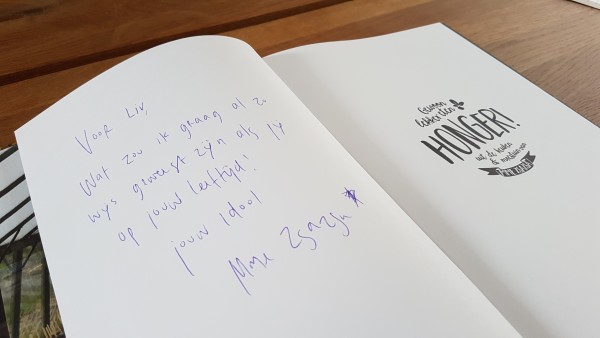 Voor Liv,
Wat zou ik graag al zo
wijs geweest zijn als jij
op jouw leeftijd!
jouw idool
Mme Zsazsa
Gewoon
lekker eten
HONGER!
uit de keuken
& moestuin van
MME ZSAZSA